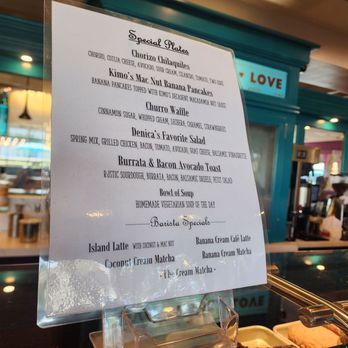 Special Plates
Chorizo Chilaquiles
CHORIZO, COTIJA CHEESE, AVOCADO, SOUR CREAM, CILANTRO, TOMATO, TWO EGGS
Kimo's Mac Nut Banana Pancakes
BANANA PANCAKES TOPPED WITH KIMO'S DECADENT MACADAMIA NUT SAUCE
Churro Waffle
CINNAMON SUGAR, WHIPPED CREAM, CARAMEL, STRAWBERRIES
Denica's Favorite Salad
SPRING MIX, GRILLED CHICKEN, BACON, TOMATO, AVOCADO, GOAT CHEESE, BALSAMIC VINAIGRETTE
Burrata & Bacon Avocado Toast
RUSTIC SOURDOUGH, BURRATA, BACON, BALSAMIC DRIZZLE, PETIT SALAD
Bowl of Soup
HOMEMADE VEGETARIAN SOUP OF THE DAY
Barista Specials
Island Latte WITH COCONUT & MAC NUT
Banana Cream Café Latte
Coconut Cream Matcha
Banana Cream Matcha
Cream Matcha
LOVE